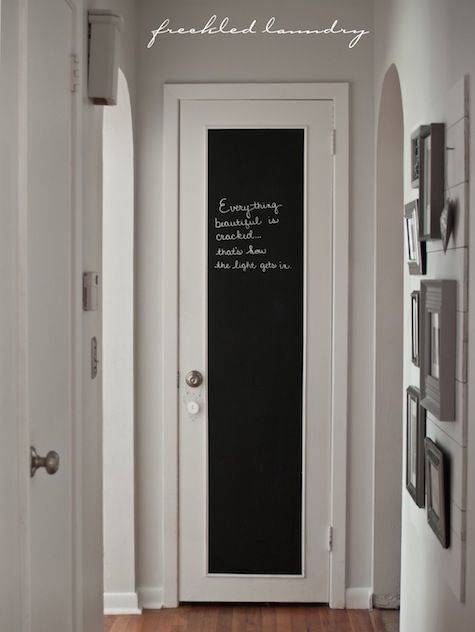 freckled laundry
Everything
beautiful is
cracked...
that's how
the light gets in.